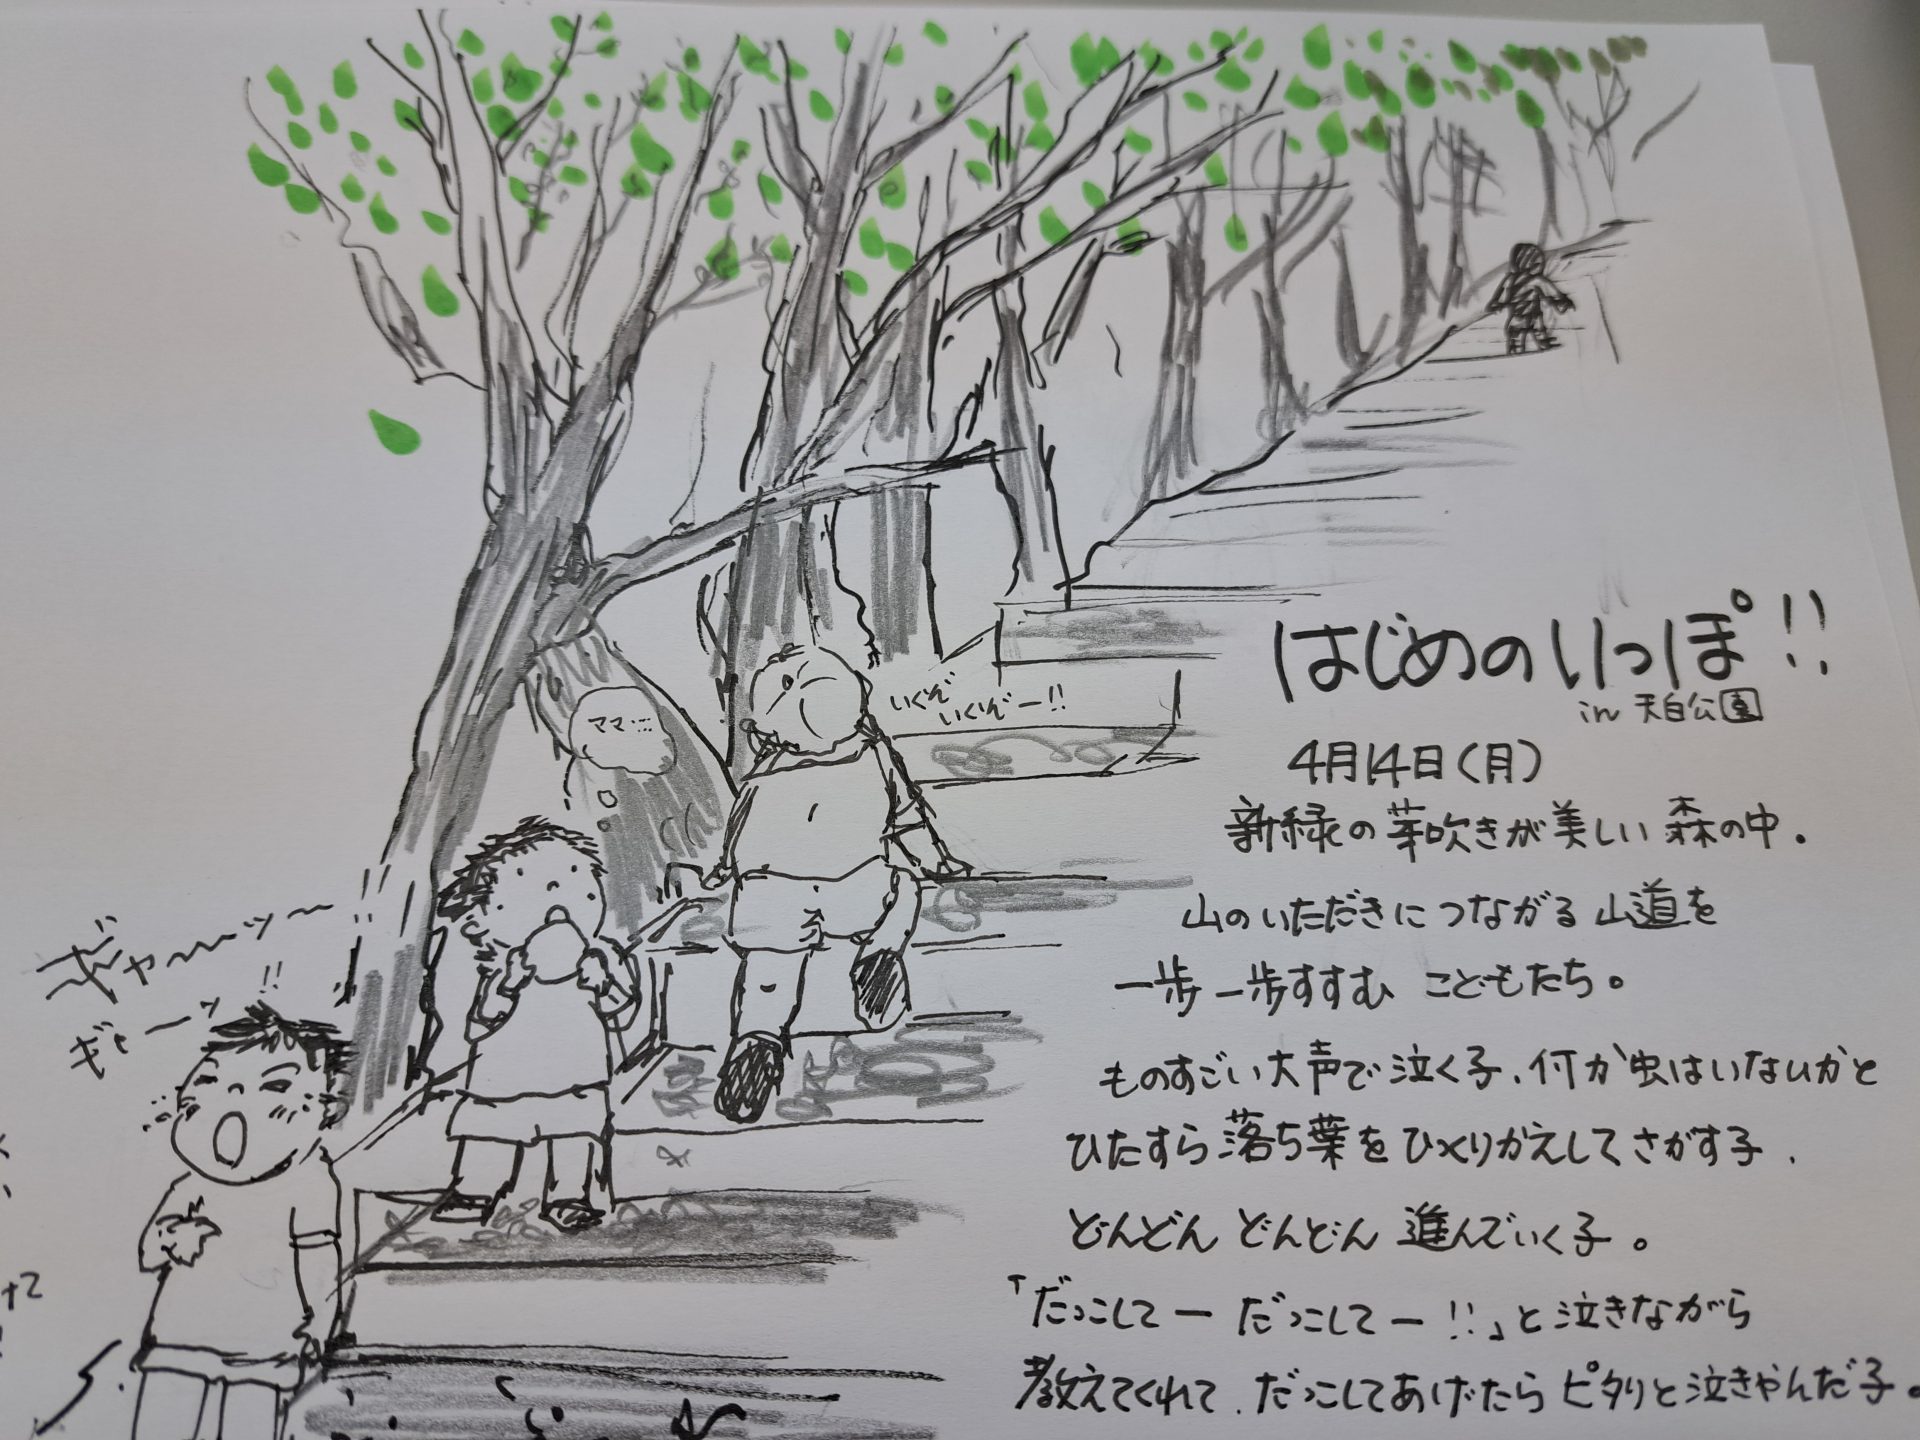 はじめのいっぽ!!
in 天白公園
4月14日(月)
新緑の芽吹きが美しい 森の中。
山のいただきにつながる 山道を
一歩一歩すすむ こどもたち。
ものすごい大声で泣く子、何か虫はいないかと
ひたすら落ち葉をひっくりかえしてさがす子、
どんどん どんどん 進んでいく子。
「だっこしてー だっこしてー!!」と泣きながら
教えてくれて、だっこしてあげたらピタリと泣きやんだ子。
いくぞ
いくぞー!!
ママ…
ギャ〜〜ッ〜!!
ギャーッ!!